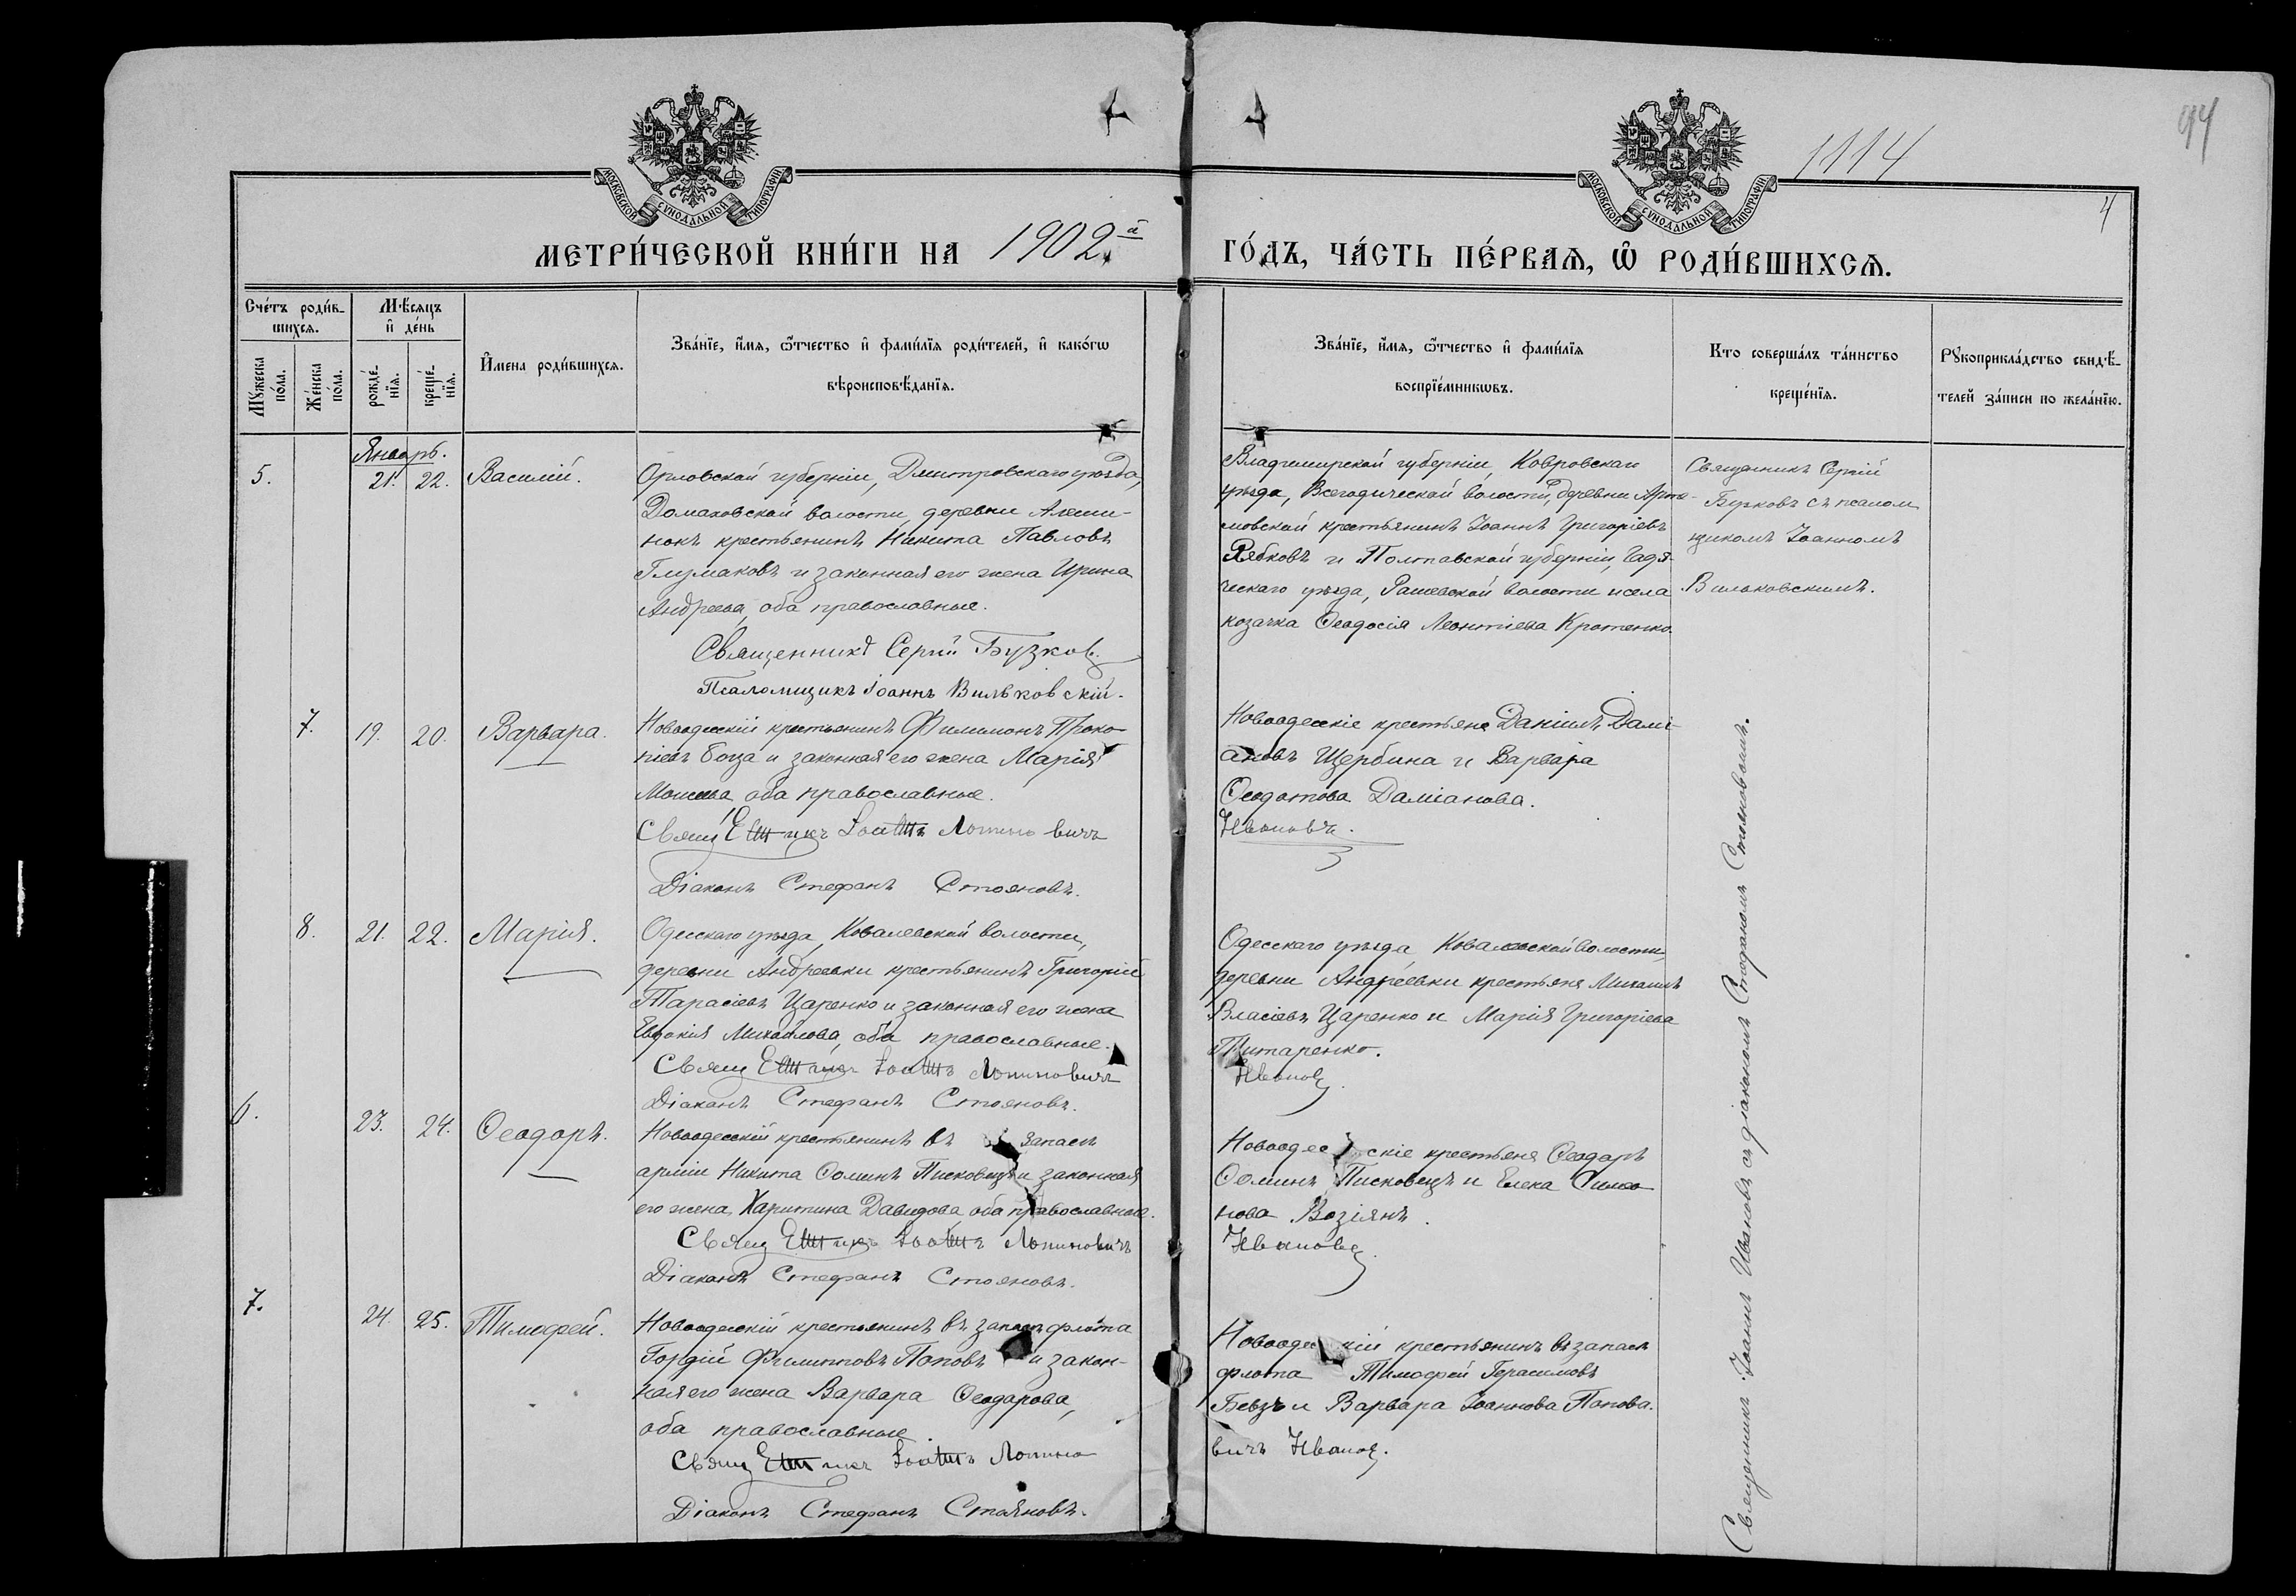 94
1114
4
МОСКОВСКОЙ СУНОДАЛЬНОЙ ТИПОГРАФІИ
МОСКОВСКОЙ СУНОДАЛЬНОЙ ТИПОГРАФІИ
МЕТРИ́ЧЕСКОЙ КНИ́ГИ НА 1902й ГО́ДЪ, ЧА́СТЬ ПЕ́РВАѦ, Ѽ РОДИ́ВШИХСѦ.
Сче́тъ роди́в-
шихсѧ.
Мѣ́сѧцъ
и҆ де́нь
Мꙋ́жеска
по́ла.
Же́нска
по́ла.
рожде́-
нїѧ.
креще́-
нїѧ.
И҆мена роди́вшихсѧ.
Зва́нїе, и҆́мѧ, ѻ҆́тчество и҆ фами́лїѧ роди́телей, и҆ како́гѡ
вѣроисповѣ́данїѧ.
Зва́нїе, и҆́мѧ, ѻ҆́тчество и҆ фами́лїѧ
воспрїе́мникѡвъ.
Кто соверша́лъ та́инство
креще́нїѧ.
Рꙋкоприкла́дство свидѣ́-
телей за́писи по жела́нїю.
Январь.
5. 21. 22. Василій.
Орловской губерніи, Дмитровскаго уѣзда,
Домаховской волости, деревни Алеши-
нокъ крестьянинъ Никита Павловъ
Глумаковъ и законная его жена Ирина
Андреева, оба православные.
Священникъ Сергій Бузков
Псаломщикъ Іоаннъ Вильковскій.
Владимирской губерніи, Ковровскаго
уѣзда, Всегодической волости, деревни Арте-
мовской крестьянинъ Іоаннъ Григоріевъ
Рябковъ и Полтавской губерніи, Гадя-
ческаго уѣзда, Рашевской волости и села
козачка Ѳеодосія Леонтіева Кротенко.
Священникъ Сергій
Бузковъ съ псалом
щикомъ Іоанномъ
Вильковскимъ.
7. 19. 20. Варвара.
Новоодесскій крестьянинъ Филимонъ Проко-
піевъ Боца и законная его жена Марія
Моисеева, оба православные.
Священникъ Іоаннъ Лотино вичъ
Діаконъ Стефанъ Стояновъ.
Новоодесскіе крестьяне Даніилъ Дамі-
ановъ Щербина и Варвара
Ѳеодотова Даміанова.
Ивановъ.
8. 21. 22. Марія.
Одесскаго уѣзда, Ковалевской волости,
деревни Андреевки крестьянинъ Григорій
Тарасіевъ Царенко и законная его жена
Евдокія Михайлова, оба православные.
Священникъ Іоаннъ Лотиновичъ
Діаконъ Стефанъ Стояновъ.
Одесскаго уѣзда, Ковалевской волости,
деревни Андреевки крестьяне Михаилъ
Власіевъ Царенко и Марія Григоріева
Титаренко.
Иванов.
6. 23. 24. Ѳеодоръ.
Новоодесскій крестьянинъ въ запасѣ
арміи Никита Ѳоминъ Писковецъ и законная
его жена Харитина Давидова, оба православные.
Священникъ Іоаннъ Лотиновичъ
Діаконъ Стефанъ Стояновъ.
Новоодесскіе крестьяне Ѳеодоръ
Ѳоминъ Писковецъ и Елена Симео
нова Возіянъ.
Иванов.
7. 24. 25. Тимофей.
Новоодесскій крестьянинъ въ запасѣ флота
Гордій Филипповъ Поповъ и закон-
ная его жена Варвара Ѳеодорова,
оба православные
Священникъ Іоаннъ Лотино
Діаконъ Стефанъ Стояновъ.
Новоодесскій крестьянинъ въ запасѣ
флота Тимофей Герасимовъ
Бевзъ и Варвара Іоаннова Попова.
вичъ Иванов.
Священникъ Іоаннъ Ивановъ съ діакономъ Стефаномъ Стояновымъ.